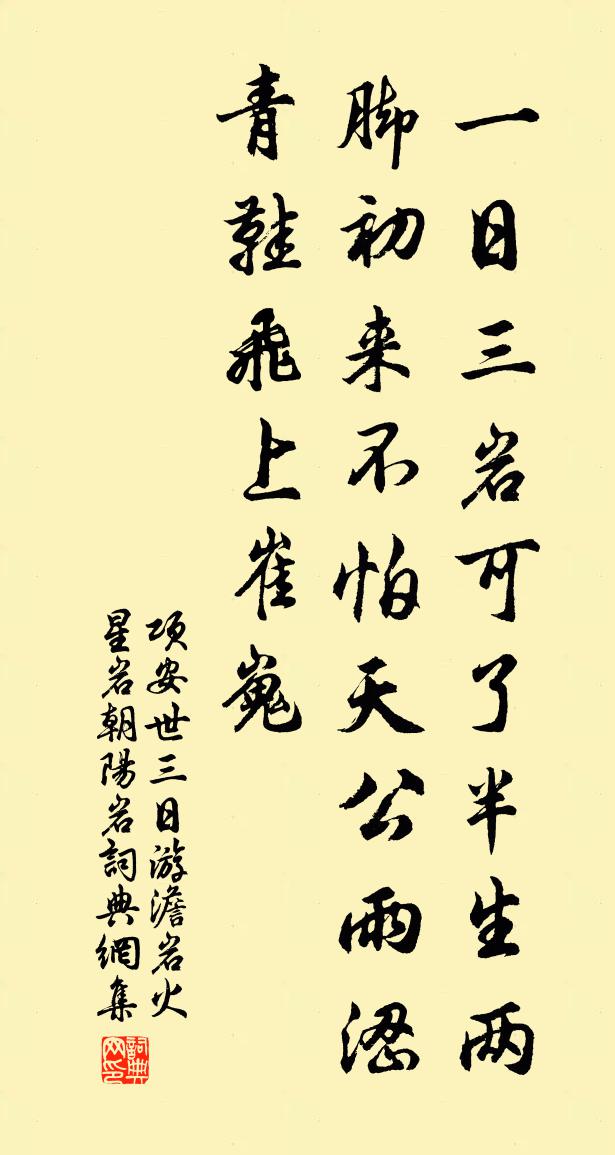 一日三岩可了半生两
脚初来不怕天公雨澀
青鞋飛上崔嵬
项安世三日游澹岩火
星岩朝陽岩詞典網集
詞典
网印